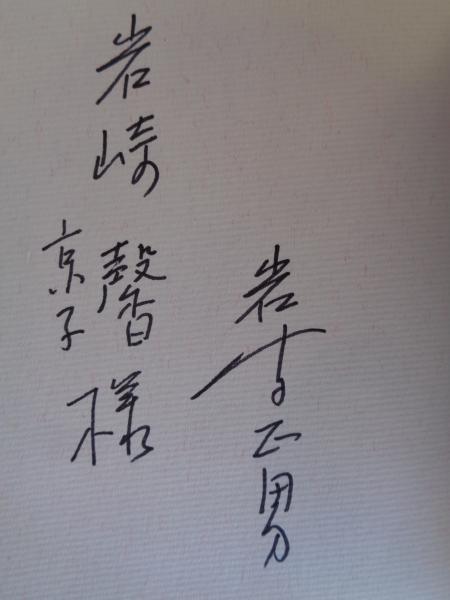 岩崎 馨
京子 様
岩本正男